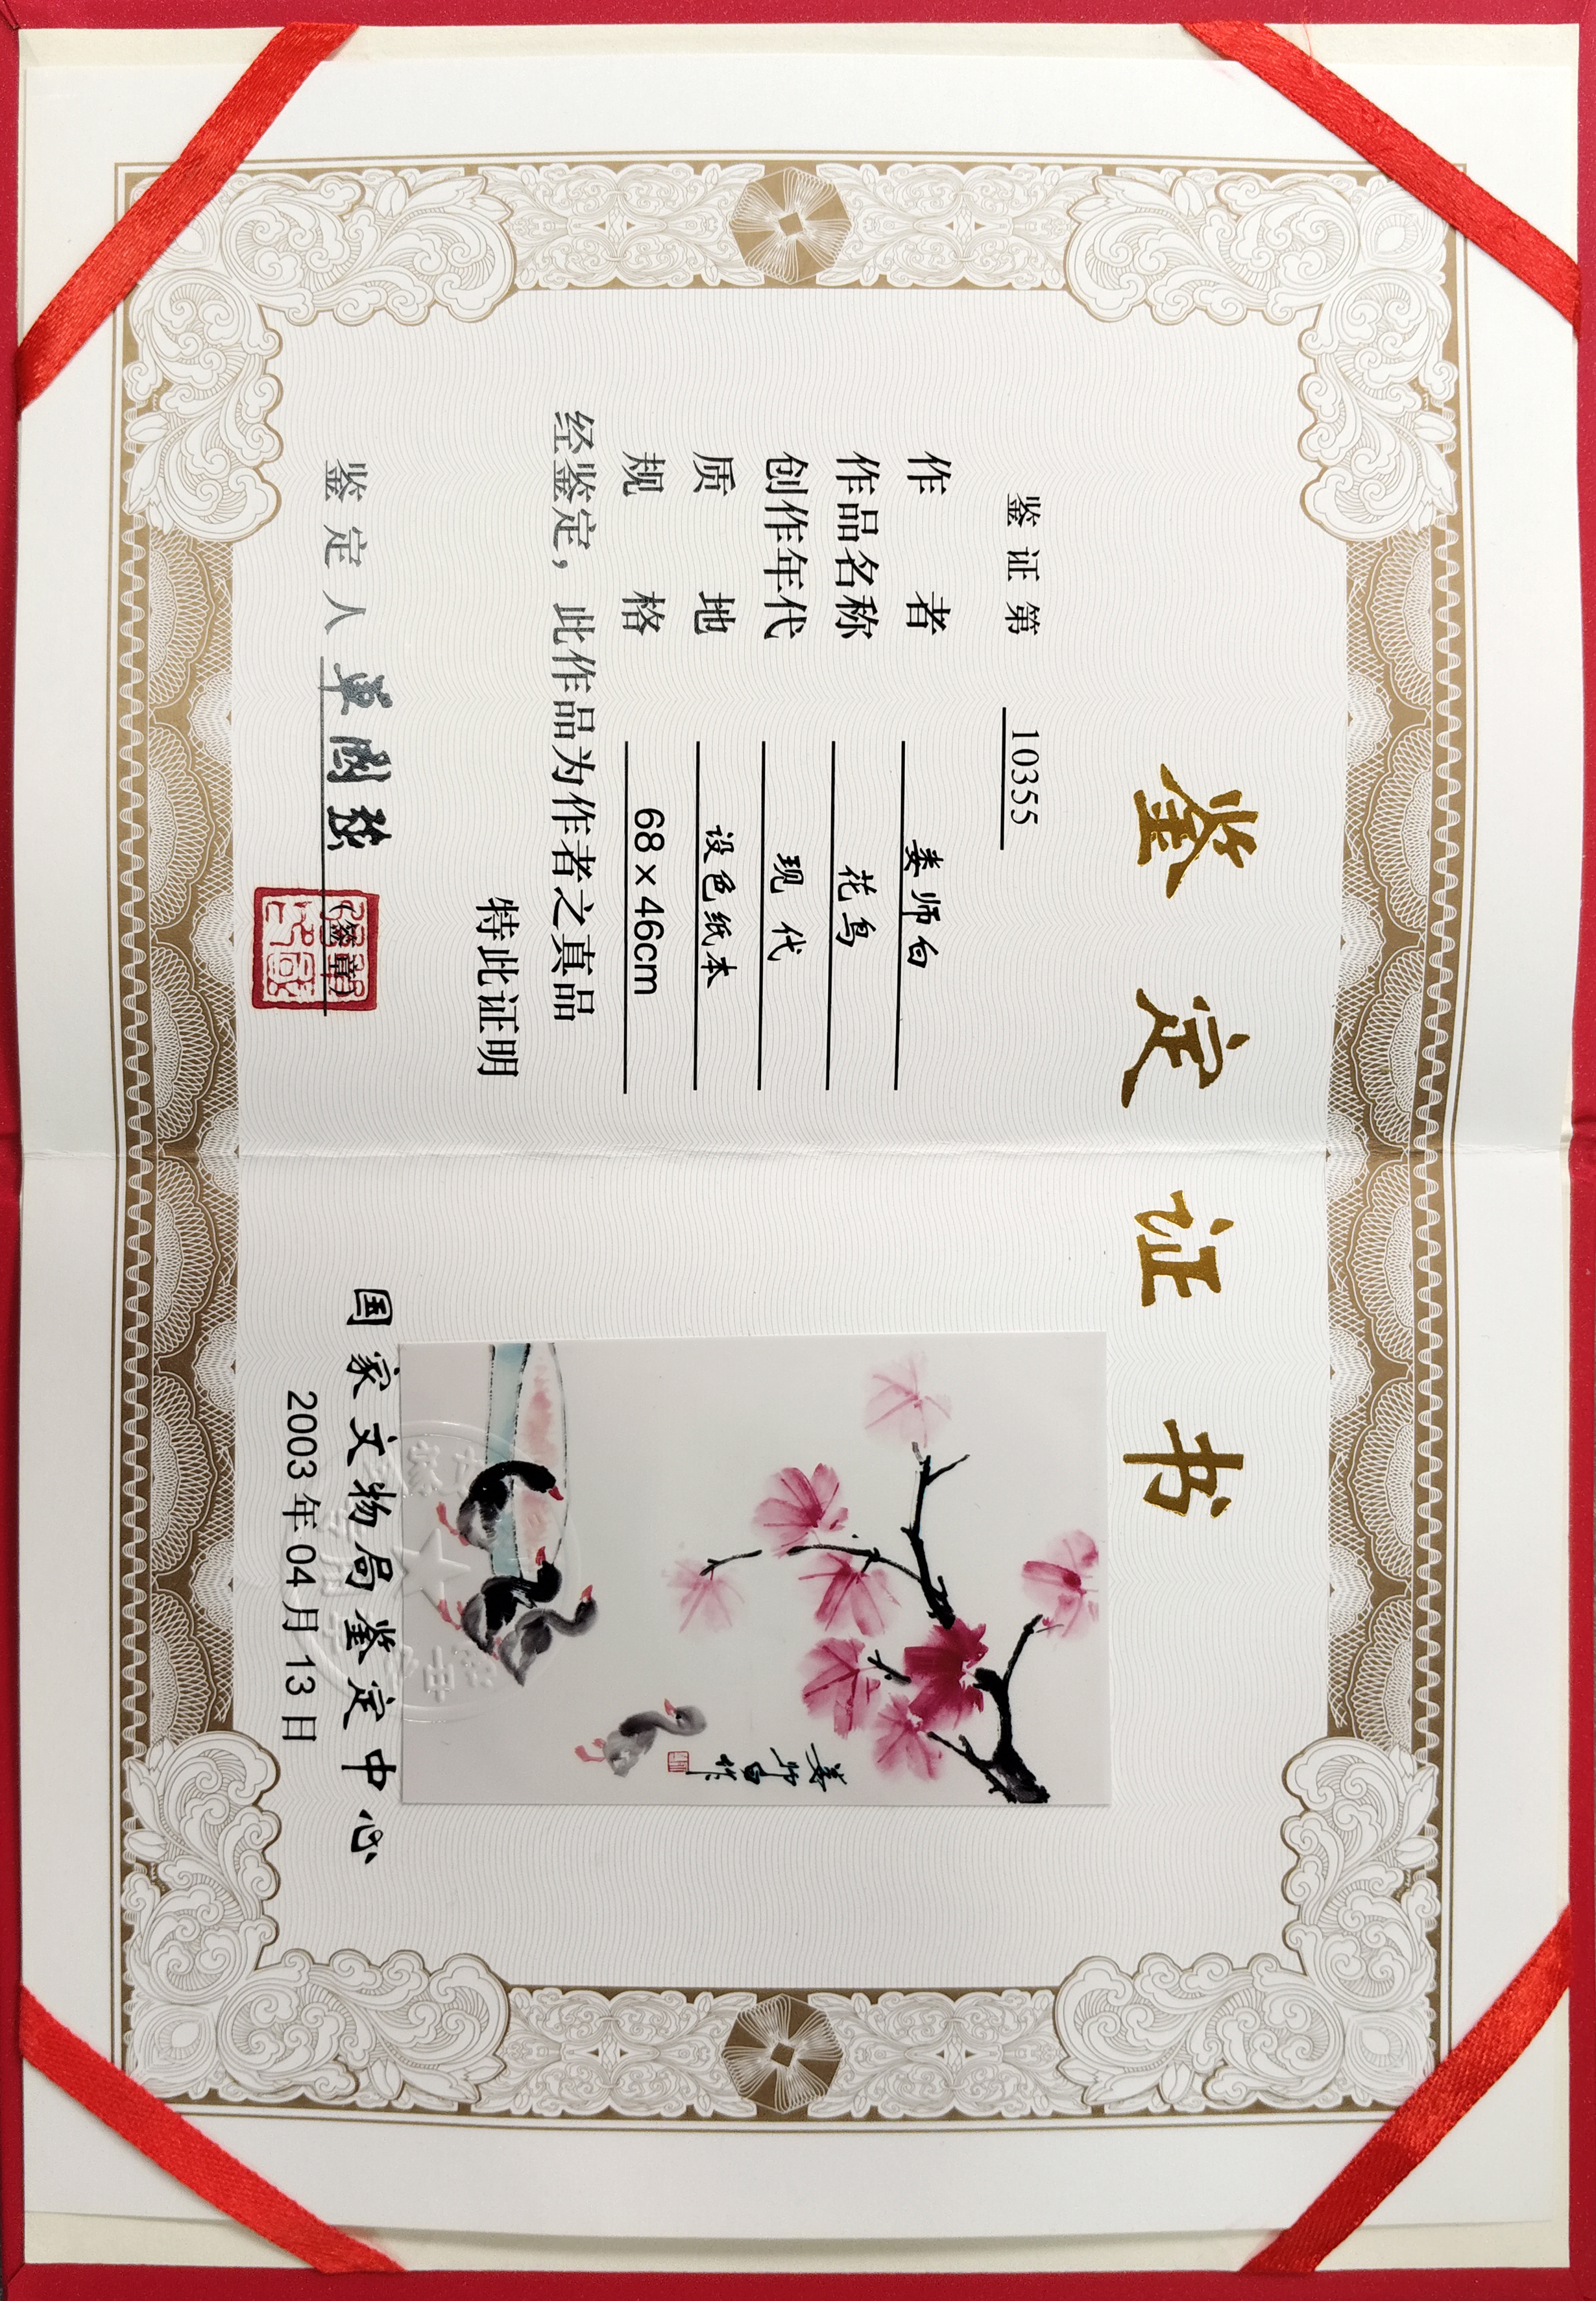 鉴定证书
鉴证第 10355
作者 娄师白
作品名称 花鸟
创作年代 现代
质地 设色纸本
规格 68×46cm
经鉴定，此作品为作者之真品
特此证明
鉴定人 章國
(签章)
娄师白作
国家文物局鉴定中心
2003年04月13日